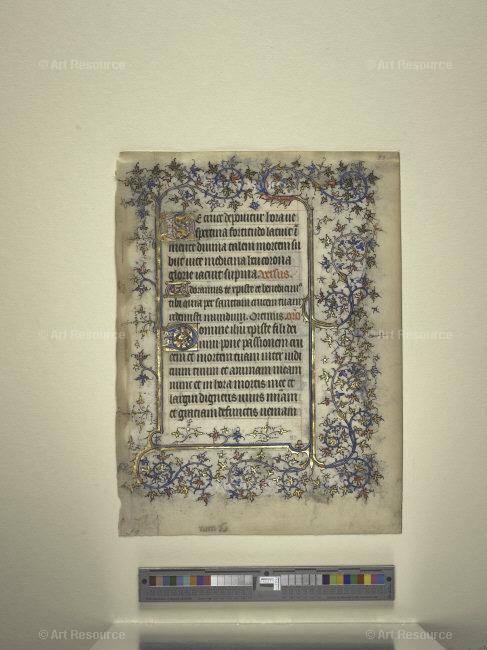 © Art Resource
© Art Resource
De cruce deponitur hora ve
spertina fortitudo latuit ī
mente divina talem mortem su
biit vite medicina heu corona
glorie iacuit supina. Versus.
Adoramus te xpiste et benedicim᷒
tibi quia per sanctam crucem tuam
redemisti mundum. Oremus. oro
Domine ihu xpiste fili dei
vivi pone passionem cru
cem et mortem tuam inter iudi
cium tuum et animam meam
nunc et in hora mortis mee et
largiri digneris vivis
et graciam defunctis veniam
© Art Resource
© Art Resource
© Art Resource
© Art Resource